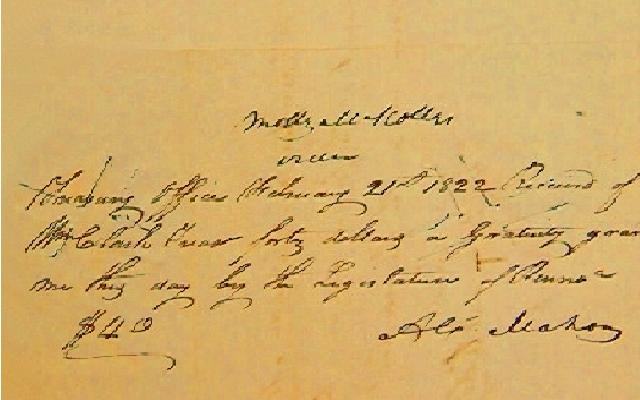 Molly McKolly
order
Treasury Office February 21st 1822 Received of
Wm Clark Treasr forty dollars a Gratuity gran
me this day by the Legislature of Penna
$40 Alex. Mahon